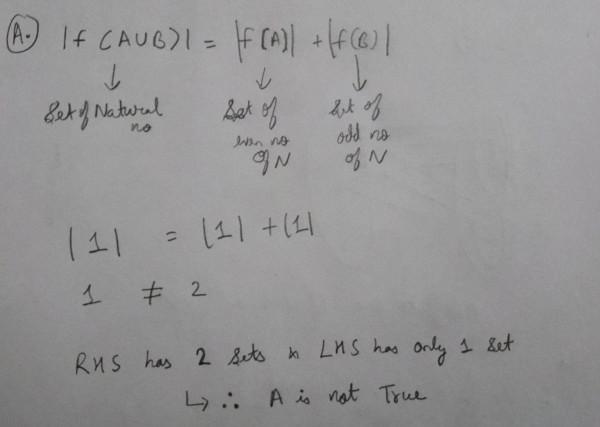 A. |f(A∪B)| = |f(A)| + |f(B)|
↓ ↓ ↓
Set of Natural no
Set of even no of N
Set of odd no of N
|1| = |1| + |1|
1 ≠ 2
RHS has 2 sets n LHS has only 1 set
↳ ∴ A is not True